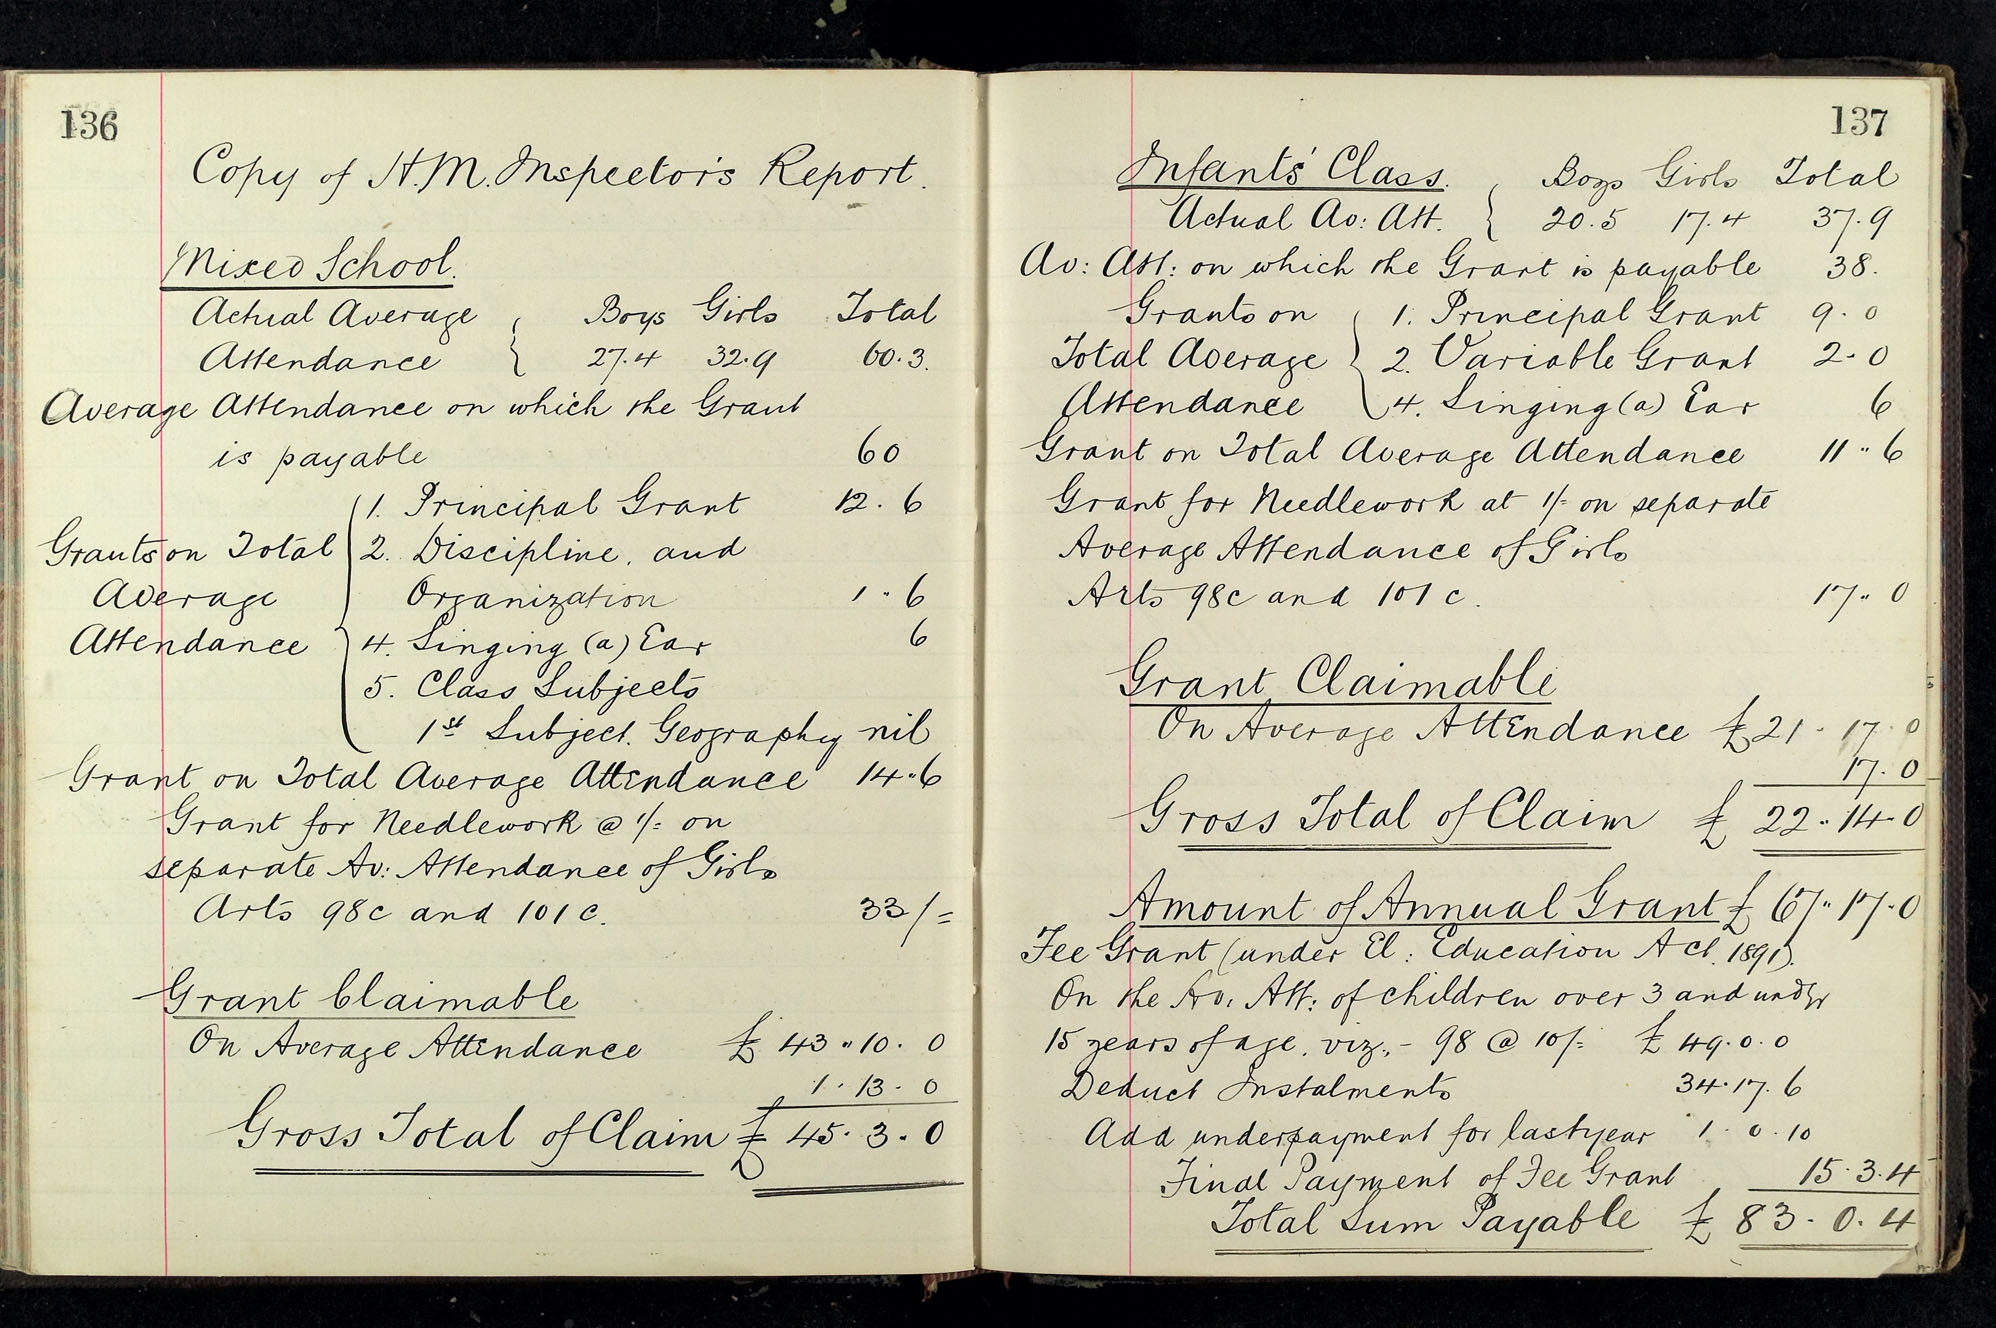 136
Copy of H.M. Inspector's Report.
Mixed School.
Actual Average Boys Girls Total
Attendance 27.4 32.9 60.3.
Average Attendance on which the Grant
is payable 60
1. Principal Grant 12.6
Grants on Total 2. Discipline, and
Average Organization 1"6
Attendance 4. Singing (a) Ear 6
5. Class Subjects
1st Subject. Geography nil
Grant on Total Average Attendance 14"6
Grant for Needlework @ 1/= on
separate Av: Attendance of Girls
Arts 98c and 101c. 33/=
Grant Claimable
On Average Attendance £ 43"10.0
1.13.0
Gross Total of Claim £ 45.3.0
137
Infants' Class. Boys Girls Total
Actual Av: Att. 20.5 17.4 37.9
Av: Att: on which the Grant is payable 38.
Grants on 1. Principal Grant 9.0
Total Average 2. Variable Grant 2.0
Attendance 4. Singing (a) Ear 6
Grant on Total Average Attendance 11"6
Grant for Needlework at 1/- on separate
Average Attendance of Girls
Arts 98c and 101c. 17"0
Grant Claimable
On Average Attendance £21.17.0
17.0
Gross Total of Claim £ 22.14.0
Amount of Annual Grant £ 67"17.0
Fee Grant (under El: Education Act. 1891).
On the Av. Att: of children over 3 and under
15 years of age. viz.- 98 @ 10/= £ 49.0.0
Deduct Instalments 34.17.6
Add underpayment for last year 1.0.10
Final Payment of Fee Grant 15.3.4
Total Sum Payable £ 83.0.4